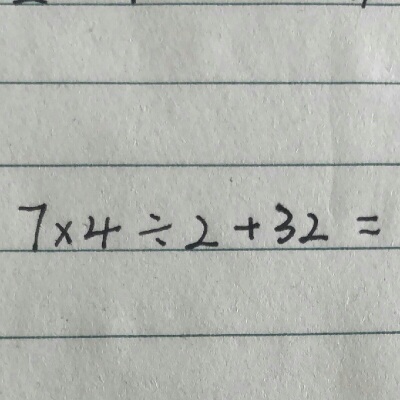 7×4÷2+32=